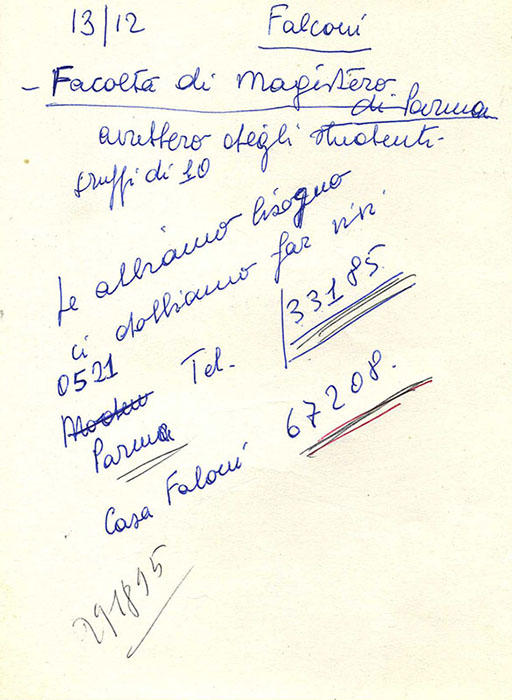 13/12 Falconi
- Facoltà di Magistero
di Parma
avrebbero degli studenti
gruppi di 10
se abbiamo bisogno
ci dobbiamo far vivi
0521 Tel. 33185
Parma
Casa Falconi 67208.
291895